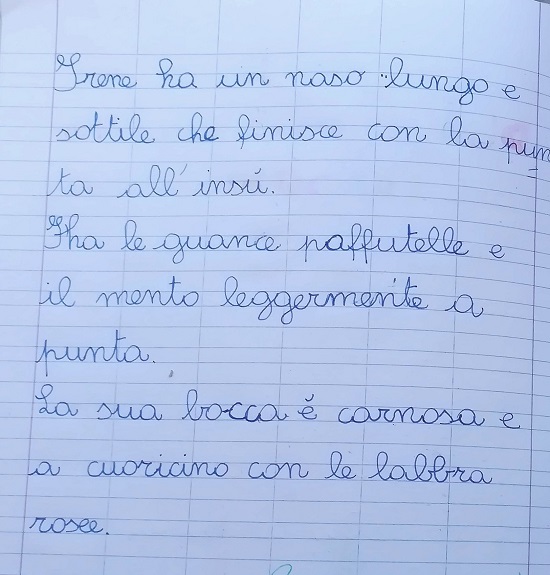 Irene ha un naso lungo e
sottile che finisce con la pun
ta all'insú.
Ha le guance paffutelle e
il mento leggermente a
punta.
La sua bocca é carnosa e
a cuoricino con le labbra
rosee.